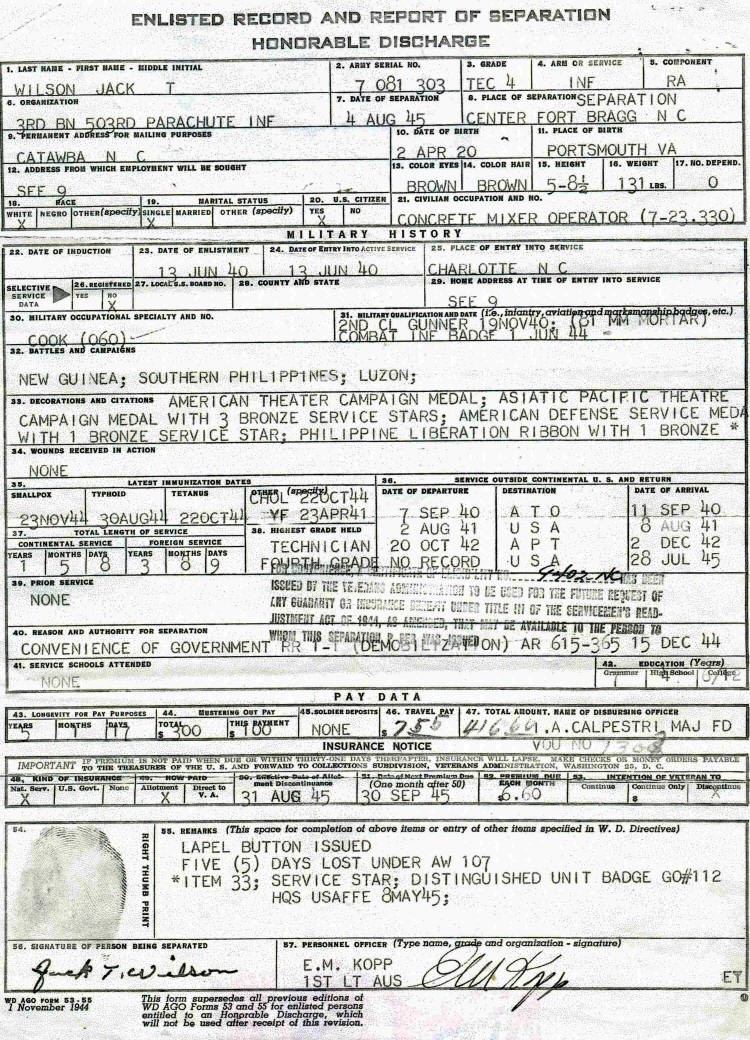 ENLISTED RECORD AND REPORT OF SEPARATION
HONORABLE DISCHARGE
1. LAST NAME - FIRST NAME - MIDDLE INITIAL
WILSON JACK T
2. ARMY SERIAL NO.
7 081 303
3. GRADE
TEC 4
4. ARM OR SERVICE
INF
5. COMPONENT
RA
6. ORGANIZATION
3RD BN 503RD PARACHUTE INF
7. DATE OF SEPARATION
4 AUG 45
8. PLACE OF SEPARATION SEPARATION
CENTER FORT BRAGG N C
9. PERMANENT ADDRESS FOR MAILING PURPOSES
CATAWBA N C
10. DATE OF BIRTH
2 APR 20
11. PLACE OF BIRTH
PORTSMOUTH VA
12. ADDRESS FROM WHICH EMPLOYMENT WILL BE SOUGHT
SEE 9
13. COLOR EYES
BROWN
14. COLOR HAIR
BROWN
15. HEIGHT
5-8½
16. WEIGHT
131 LBS.
17. NO. DEPEND.
0
18. RACE
WHITE NEGRO OTHER (specify)
X
19. MARITAL STATUS
SINGLE MARRIED OTHER (specify)
X
20. U.S. CITIZEN
YES NO
X
21. CIVILIAN OCCUPATION AND NO.
CONCRETE MIXER OPERATOR (7-23.330)
MILITARY HISTORY
22. DATE OF INDUCTION
23. DATE OF ENLISTMENT
13 JUN 40
24. DATE OF ENTRY INTO ACTIVE SERVICE
13 JUN 40
25. PLACE OF ENTRY INTO SERVICE
CHARLOTTE N C
SELECTIVE SERVICE DATA
26. REGISTERED
YES NO
X
27. LOCAL S.S. BOARD NO.
28. COUNTY AND STATE
29. HOME ADDRESS AT TIME OF ENTRY INTO SERVICE
SEE 9
30. MILITARY OCCUPATIONAL SPECIALTY AND NO.
COOK (060)
31. MILITARY QUALIFICATION AND DATE (i.e., infantry, aviation and marksmanship badges, etc.)
2ND CL GUNNER 19NOV40; (81 MM MORTAR)
COMBAT INF BADGE 1 JUN 44
32. BATTLES AND CAMPAIGNS
NEW GUINEA; SOUTHERN PHILIPPINES; LUZON;
33. DECORATIONS AND CITATIONS AMERICAN THEATER CAMPAIGN MEDAL; ASIATIC PACIFIC THEATRE
CAMPAIGN MEDAL WITH 3 BRONZE SERVICE STARS; AMERICAN DEFENSE SERVICE MEDA
WITH 1 BRONZE SERVICE STAR; PHILIPPINE LIBERATION RIBBON WITH 1 BRONZE *
34. WOUNDS RECEIVED IN ACTION
NONE
35. LATEST IMMUNIZATION DATES
SMALLPOX TYPHOID TETANUS OTHER (specify)
CHOL 22OCT44
23NOV44 30AUG44 22OCT44 YF 23APR41
36. SERVICE OUTSIDE CONTINENTAL U. S. AND RETURN
DATE OF DEPARTURE DESTINATION DATE OF ARRIVAL
7 SEP 40 A T O 11 SEP 40
2 AUG 41 U S A 8 AUG 41
20 OCT 42 A P T 2 DEC 42
NO RECORD U S A 28 JUL 45
37. TOTAL LENGTH OF SERVICE
CONTINENTAL SERVICE FOREIGN SERVICE
YEARS MONTHS DAYS YEARS MONTHS DAYS
1 5 8 3 8 9
38. HIGHEST GRADE HELD
TECHNICIAN
FOURTH GRADE
39. PRIOR SERVICE
NONE
HAS BEEN
ISSUED BY THE VETERANS ADMINISTRATION TO BE USED FOR THE FUTURE REQUEST OF
ANY GUARANTY OR INSURANCE BENEFIT UNDER TITLE III OF THE SERVICEMEN'S READ-
JUSTMENT ACT OF 1944, AS AMENDED, THAT MAY BE AVAILABLE TO THE PERSON TO
WHOM THIS SEPARATION PAPER WAS ISSUED
40. REASON AND AUTHORITY FOR SEPARATION
CONVENIENCE OF GOVERNMENT RR 1-1 (DEMOBILIZATION) AR 615-365 15 DEC 44
41. SERVICE SCHOOLS ATTENDED
NONE
42. EDUCATION (Years)
Grammar High School College
4
PAY DATA
43. LONGEVITY FOR PAY PURPOSES
YEARS MONTHS DAYS
5 1 17
44. MUSTERING OUT PAY
TOTAL THIS PAYMENT
$ 300 $ 100
45. SOLDIER DEPOSITS
NONE
46. TRAVEL PAY
$ 7.55
47. TOTAL AMOUNT, NAME OF DISBURSING OFFICER
416.60 .A.CALPESTRI MAJ FD
VOU NO
INSURANCE NOTICE
IMPORTANT IF PREMIUM IS NOT PAID WHEN DUE OR WITHIN THIRTY-ONE DAYS THEREAFTER, INSURANCE WILL LAPSE. MAKE CHECKS OR MONEY ORDERS PAYABLE
TO THE TREASURER OF THE U. S. AND FORWARD TO COLLECTIONS SUBDIVISION, VETERANS ADMINISTRATION, WASHINGTON 25, D. C.
48. KIND OF INSURANCE
Nat. Serv. U.S. Govt. None
X
49. HOW PAID
Allotment Direct to V. A.
X
50. Effective Date of Allotment Discontinuance
31 AUG 45
51. Date of Next Premium Due (One month after 50)
30 SEP 45
52. PREMIUM DUE EACH MONTH
$ 6.60
53. INTENTION OF VETERAN TO
Continue Continue Only Discontinue
$ X
54.
RIGHT THUMB PRINT
55. REMARKS (This space for completion of above items or entry of other items specified in W. D. Directives)
LAPEL BUTTON ISSUED
FIVE (5) DAYS LOST UNDER AW 107
*ITEM 33; SERVICE STAR; DISTINGUISHED UNIT BADGE GO#112
HQS USAFFE 8MAY45;
56. SIGNATURE OF PERSON BEING SEPARATED
Jack T. Wilson
57. PERSONNEL OFFICER (Type name, grade and organization - signature)
E.M. KOPP
1ST LT AUS
EM Kopp
ET
WD AGO FORM 53-55
1 November 1944
This form supersedes all previous editions of
WD AGO Forms 53 and 55 for enlisted persons
entitled to an Honorable Discharge, which
will not be used after receipt of this revision.